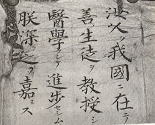 汝久ク我國ニ在テ
善ク生徒ヲ教授シ
醫學ヲシテ進歩セシム
朕深ク之ヲ嘉ミス